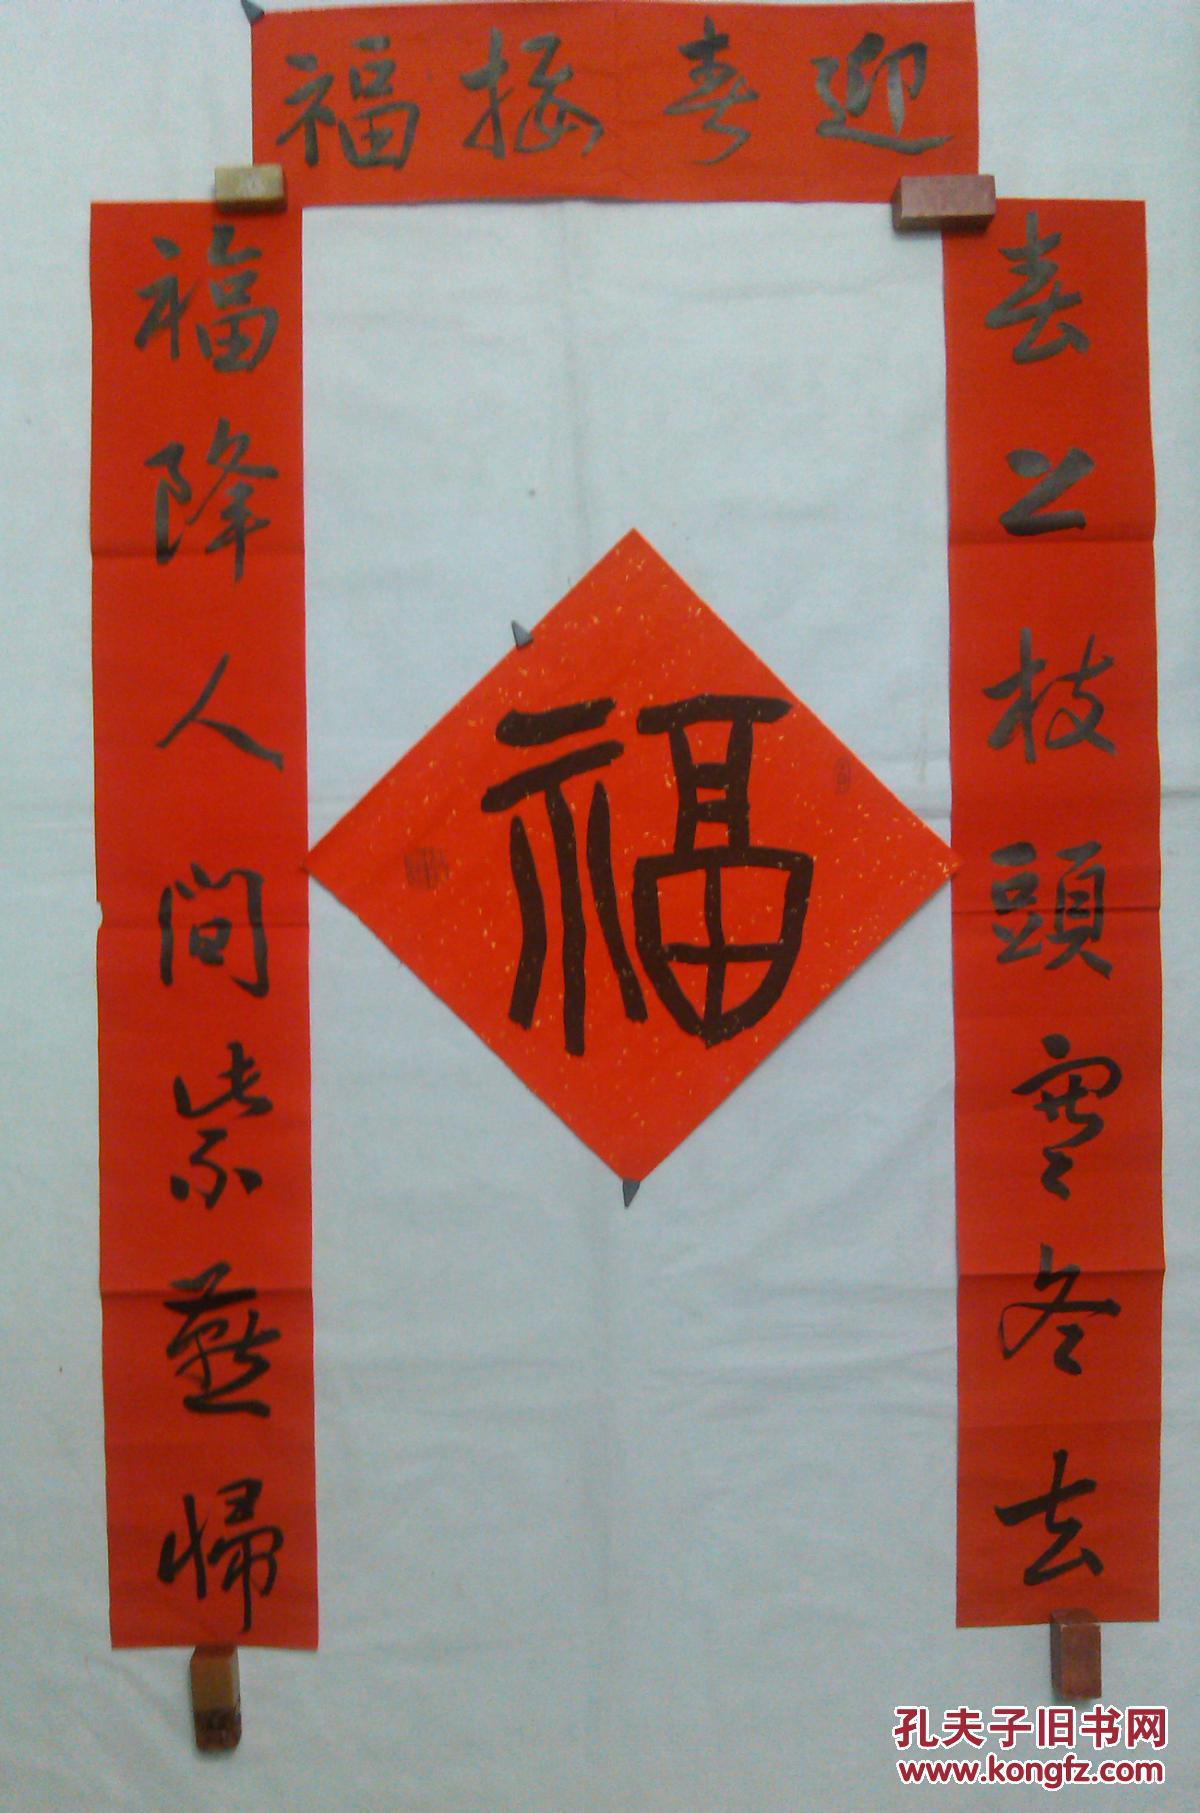 迎春接福
春上枝頭寒冬去
福降人間紫燕歸
福
孔夫子旧书网
www.kongfz.com